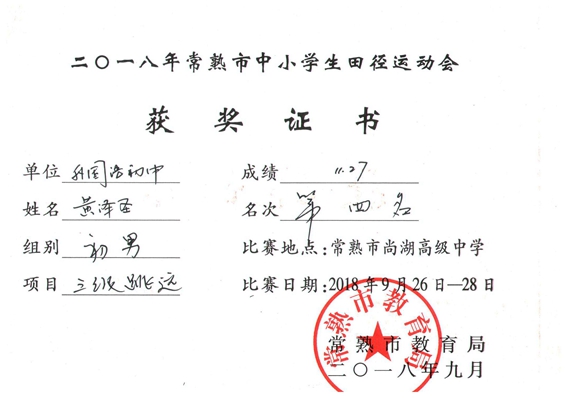 二〇一八年常熟市中小学生田径运动会
获奖证书
单位 外国语初中 成绩 11.27
姓名 黄泽圣 名次 第四名
组别 初男 比赛地点：常熟市尚湖高级中学
项目 三级跳远 比赛日期：2018年9月26日—28日
常熟市教育局
常熟市教育局
二〇一八年九月